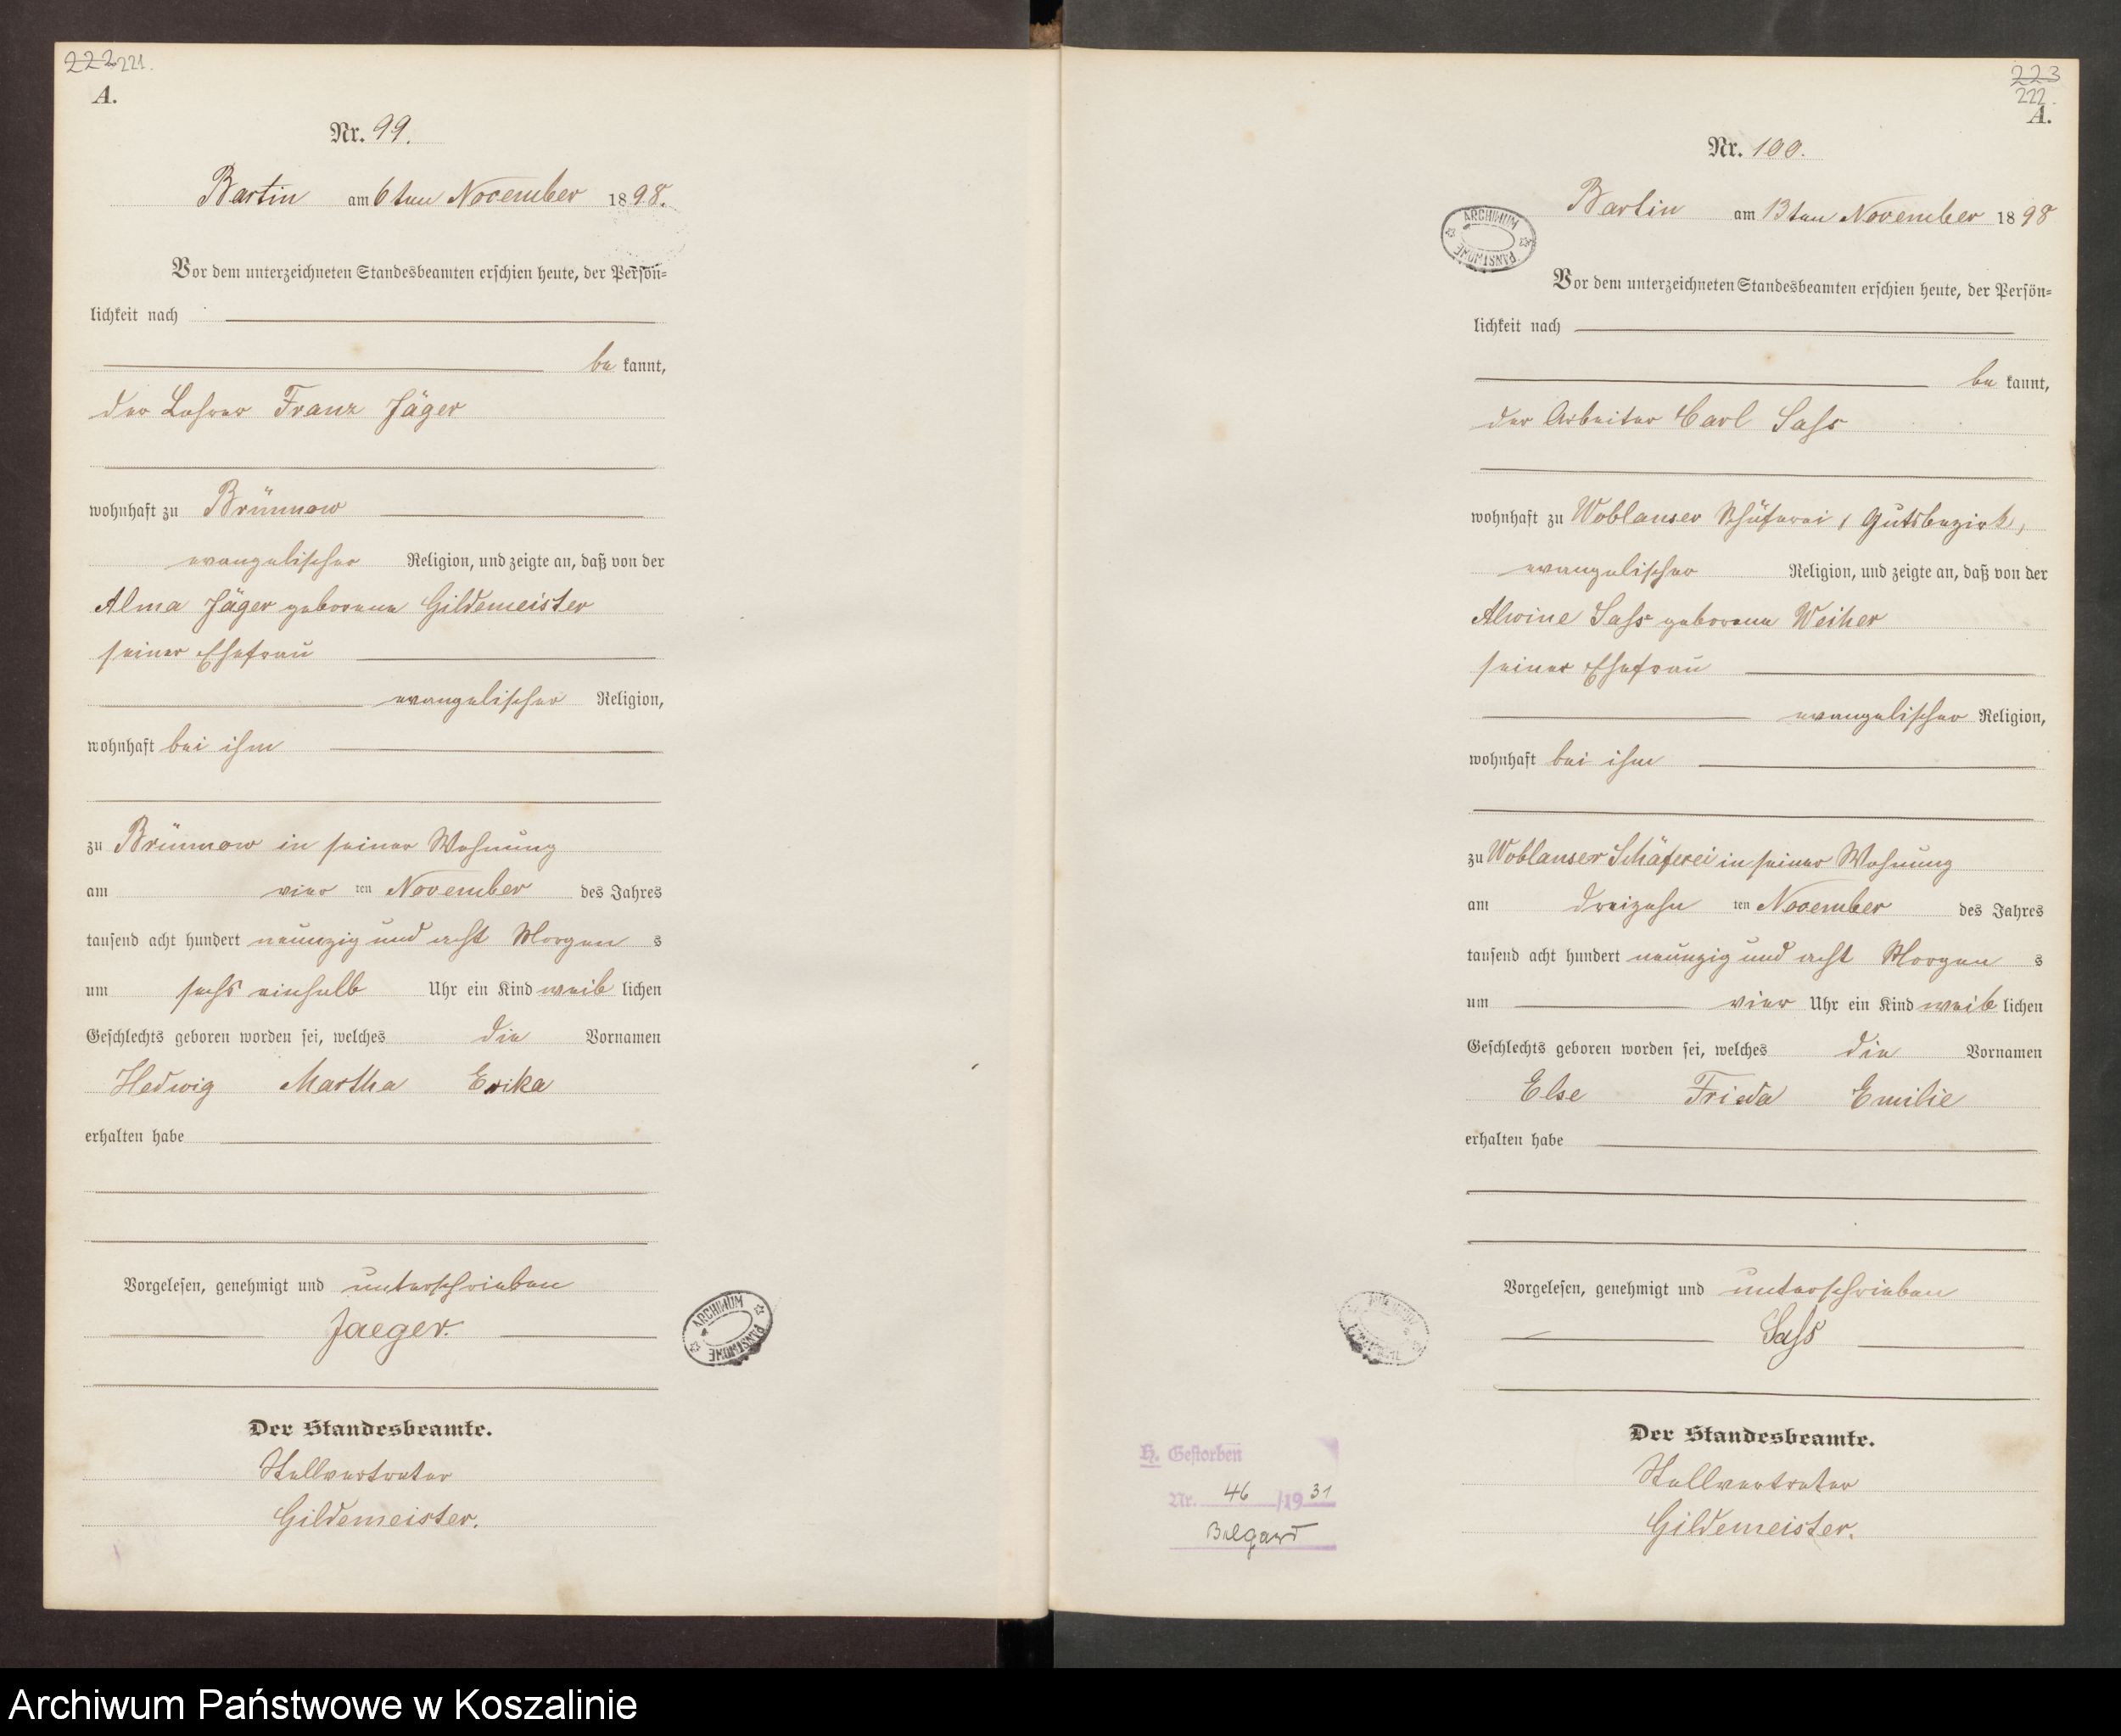 222 221.
A.
Nr. 99.
Bartin am 6ten November 1898.
Vor dem unterzeichneten Standesbeamten erschien heute, der Persön=
lichkeit nach
be kannt,
der Lehrer Franz Jäger
wohnhaft zu Brünnow
evangelischer Religion, und zeigte an, daß von der
Alma Jäger geborene Gildemeister
seiner Ehefrau
evangelischer Religion,
wohnhaft bei ihm
zu Brünnow in seiner Wohnung
am vier ten November des Jahres
tausend acht hundert neunzig und acht Morgen s
um sechs einhalb Uhr ein Kind weib lichen
Geschlechts geboren worden sei, welches die Vornamen
Hedwig Martha Erika
erhalten habe
Vorgelesen, genehmigt und unterschrieben
Jaeger.
ARCHIWUM PAŃSTWOWE
Der Standesbeamte.
Stellvertreter
Gildemeister.
223
222.
A.
Nr. 100.
ARCHIWUM PAŃSTWOWE
Bartin am 13ten November 1898
Vor dem unterzeichneten Standesbeamten erschien heute, der Persön=
lichkeit nach
be kannt,
der Arbeiter Carl Sass
wohnhaft zu Woblanser Schäferei, Gutsbezirk,
evangelischer Religion, und zeigte an, daß von der
Alwine Sass geborene Weiher
seiner Ehefrau
evangelischer Religion,
wohnhaft bei ihm
zu Woblanser Schäferei in seiner Wohnung
am dreizehn ten November des Jahres
tausend acht hundert neunzig und acht Morgen s
um vier Uhr ein Kind weib lichen
Geschlechts geboren worden sei, welches die Vornamen
Else Frieda Emilie
erhalten habe
Vorgelesen, genehmigt und unterschrieben
Sass
Der Standesbeamte.
Stellvertreter
Gildemeister.
H. Gestorben
Nr. 46 /19 31
Belgard
Archiwum Państwowe w Koszalinie